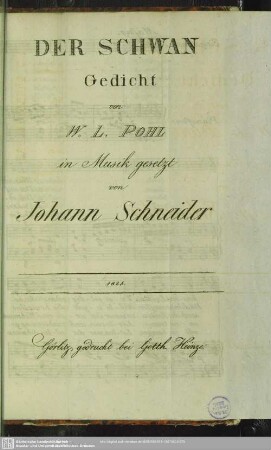 DER SCHWAN
Gedicht
von
W. L. POHL
in Musik gesetzt
von
Johann Schneider
1825.
Görlitz, gedruckt bei Gotth. Heinze.